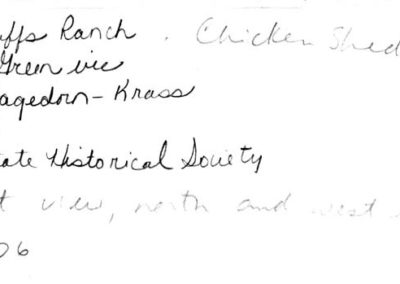 uffs Ranch . Chicken Shed
Green vic
agedorn - Krass
ate Historical Society
t view, north and west
06